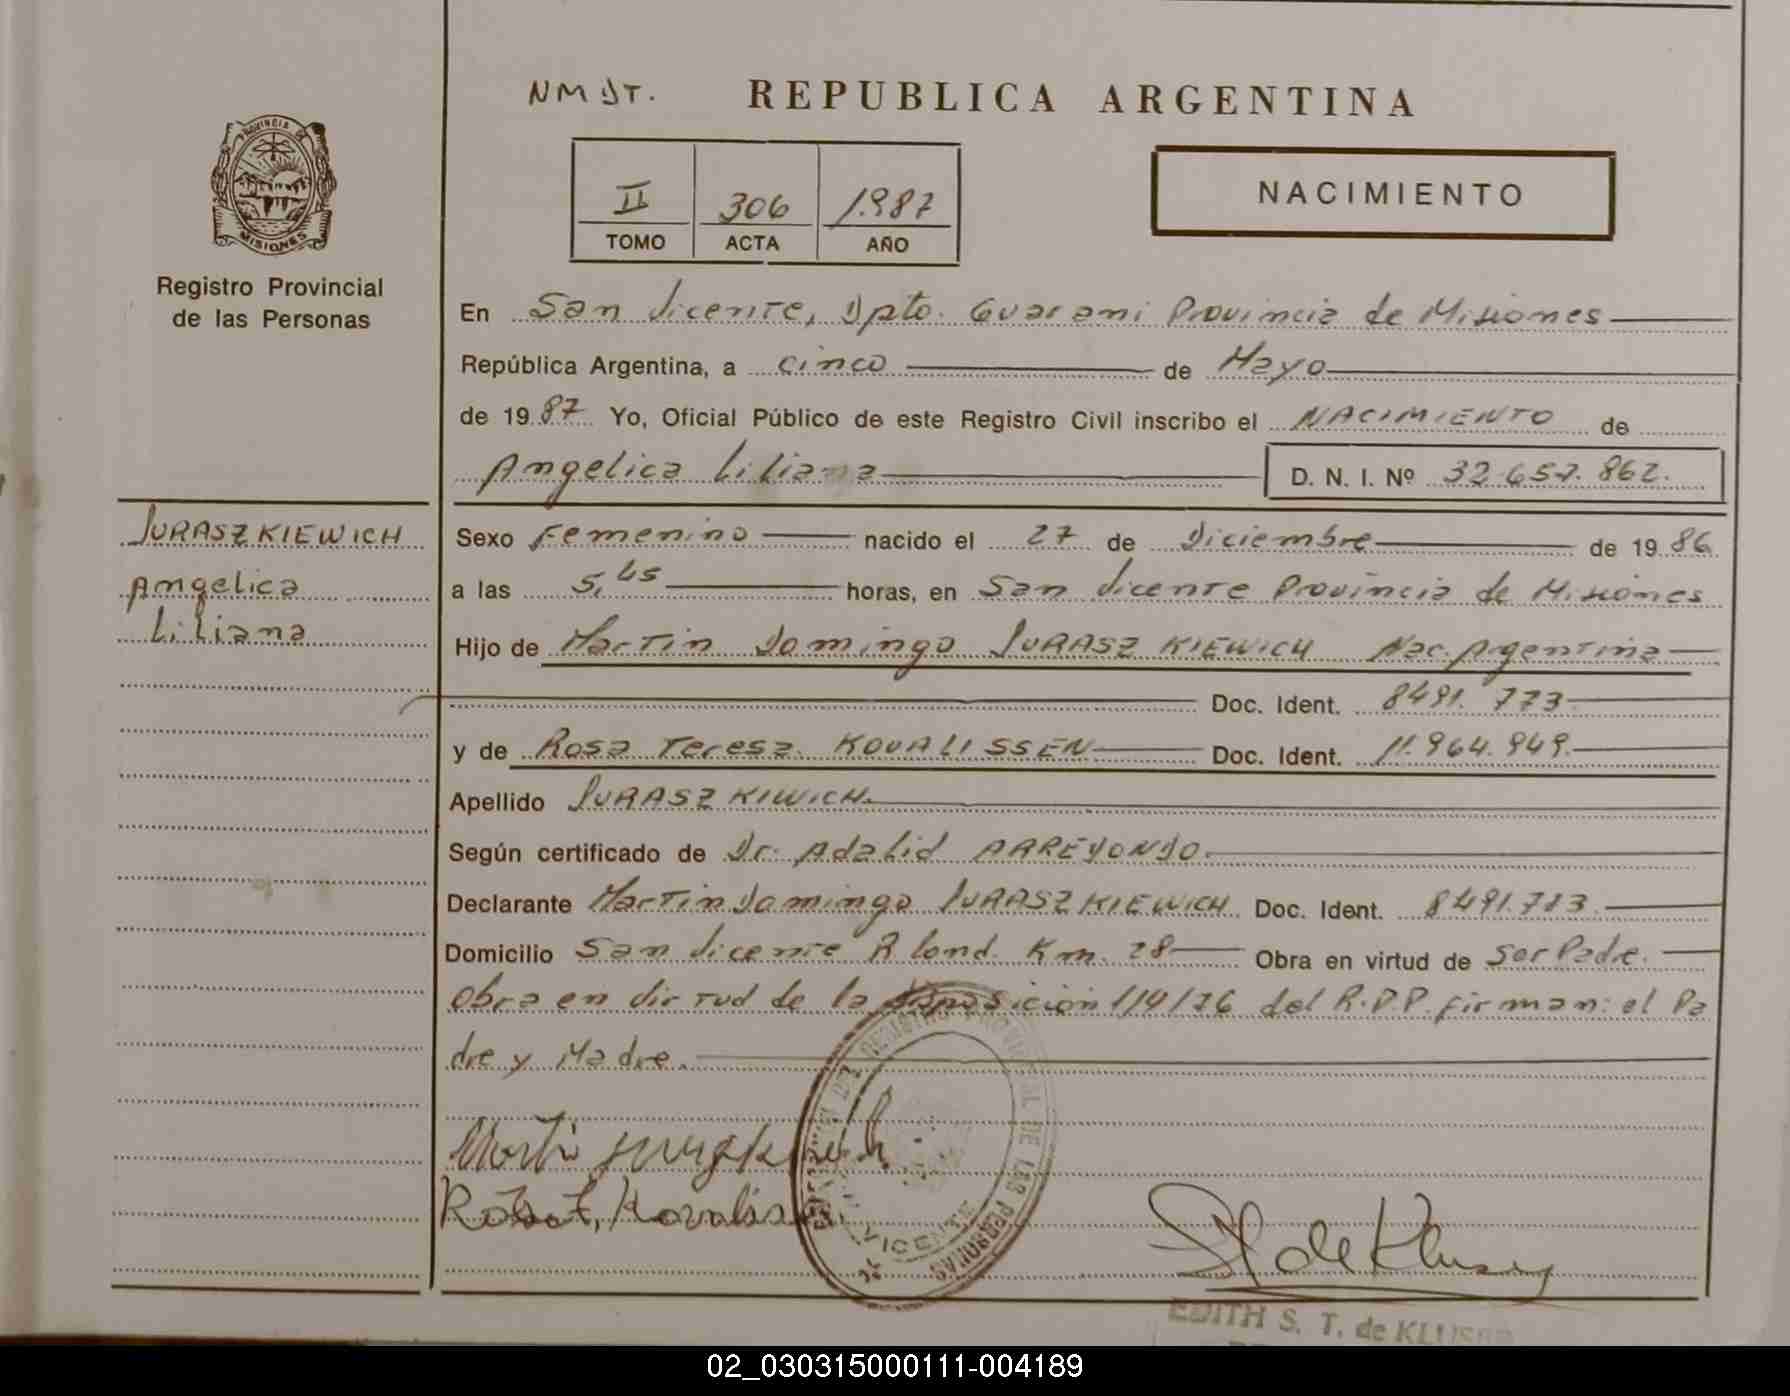 NMDT. REPUBLICA ARGENTINA
PROVINCIA DE
MISIONES
Registro Provincial
de las Personas
II 306 1.987
TOMO ACTA AÑO
NACIMIENTO
En San Vicente, Dpto. Guarani Provincia de Misiones
República Argentina, a cinco de Mayo
de 1987 Yo, Oficial Público de este Registro Civil inscribo el NACIMIENTO de
Angelica Liliana D. N. I. Nº 32.657.862.
JURASZKIEWICH
Angelica
Liliana
Sexo Femenino nacido el 27 de Diciembre de 1986
a las 5,45 horas, en San Vicente Provincia de Misiones
Hijo de Martin Domingo JURASZKIEWICH Nac. Argentina
Doc. Ident. 8491.773
y de Rosa Teresa KOVALISSEN Doc. Ident. 11.964.949.
Apellido JURASZKIWICH
Según certificado de Dr. Adalid ARREYONDO.
Declarante Martin Domingo JURASZKIEWICH Doc. Ident. 8491.773.
Domicilio San Vicente A Lond. Km. 28 Obra en virtud de Ser Padre.
Obra en Virtud de la Disposición 1/4/76 del R.P.P. firman: el Pa
dre y Madre.
REGISTRO PROVINCIAL DE LAS PERSONAS
VICENTE
EDITH S. T. de KLUSER
02_030315000111-004189